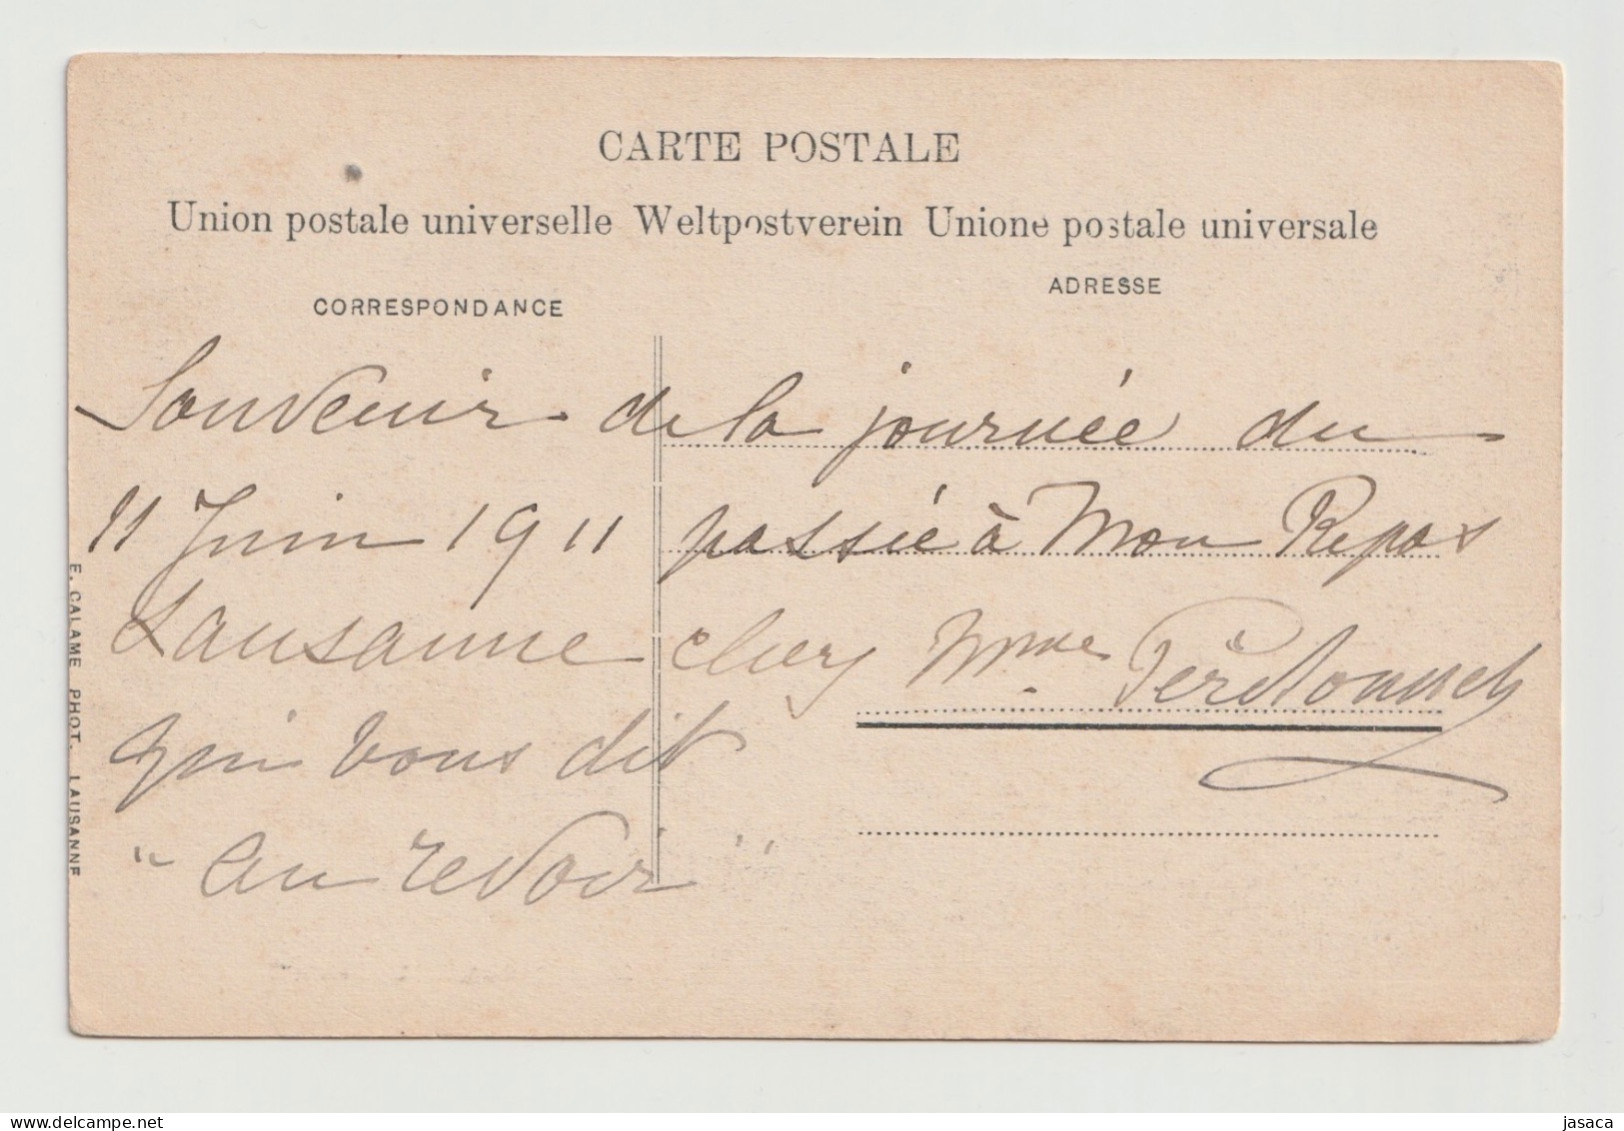 CARTE POSTALE
Union postale universelle Weltpostverein Unione postale universale
CORRESPONDANCE
ADRESSE
Souvenir de la journée du
11 Juin 1911 passée à Mon Repos
Lausanne chez Mme Perdonnet
qui vous dit
"au revoir"
E. CALAME PHOT. LAUSANNE
www.delcampe.net
jasaca